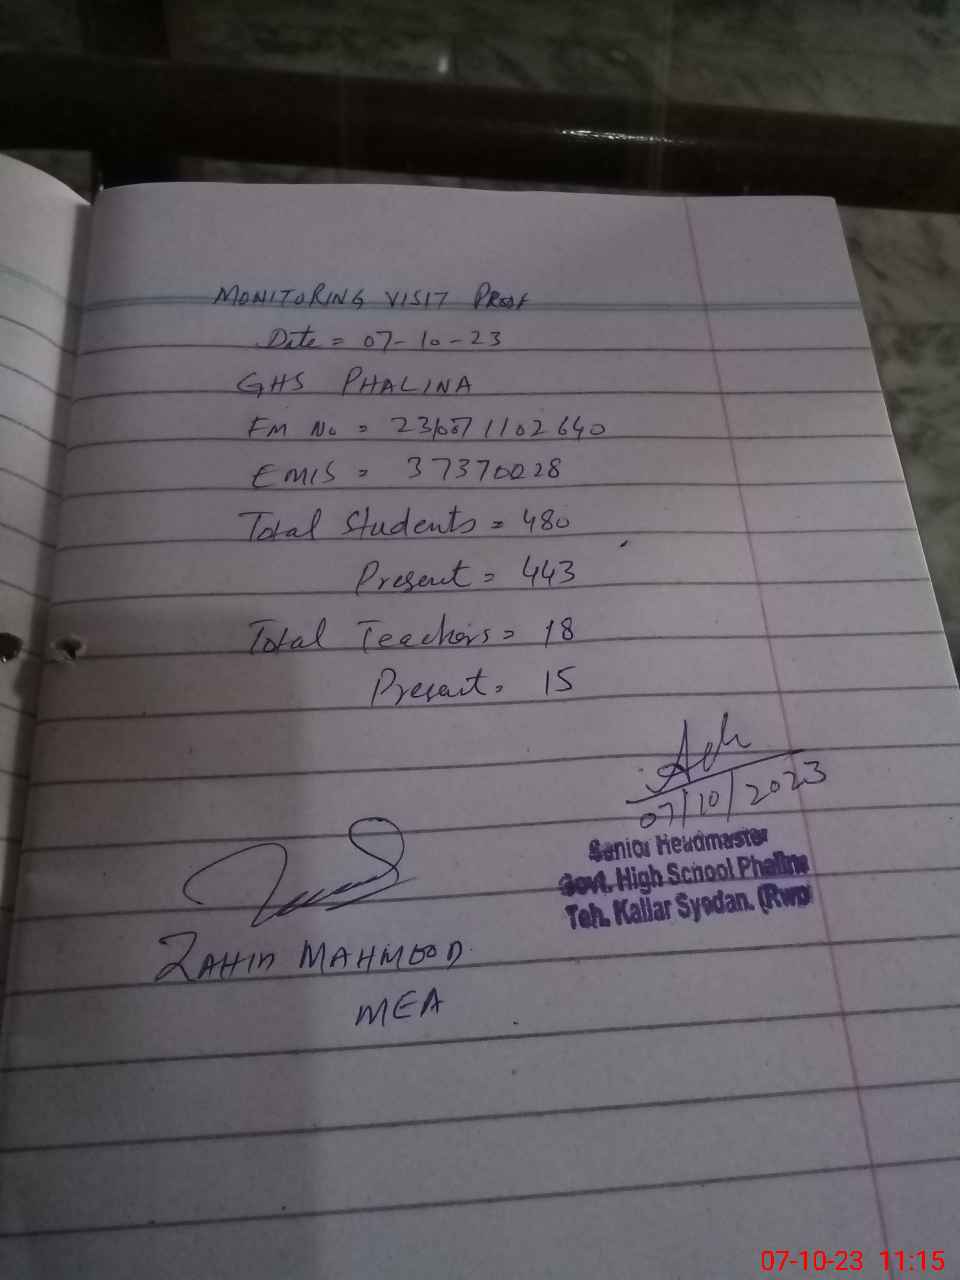 MONITORING VISIT PROOF
Date = 07-10-23
GHS PHALINA
EMIS = 37370028
Total Students = 480
Present = 443
Total Teachers = 18
Present = 15
07/10/2023
Senior Headmaster
Govt. High School Phalina
Teh. Kallar Syedan. (Rwp
MAHMOOD
MEA
07-10-23 11:15